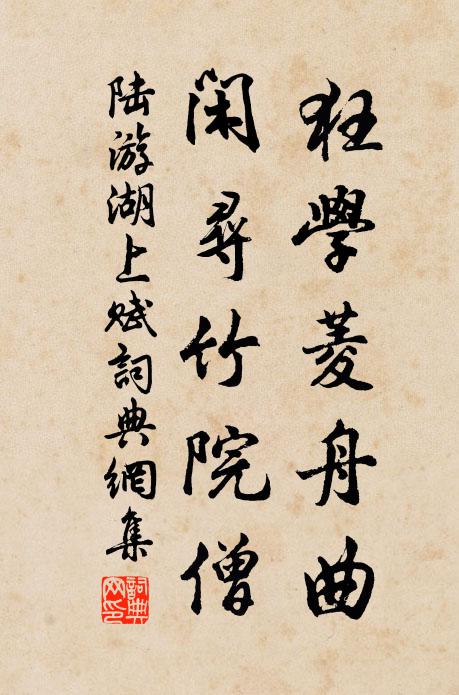 狂學菱舟曲
閑尋竹院僧
陆游湖上赋詞典網集
詞典网印